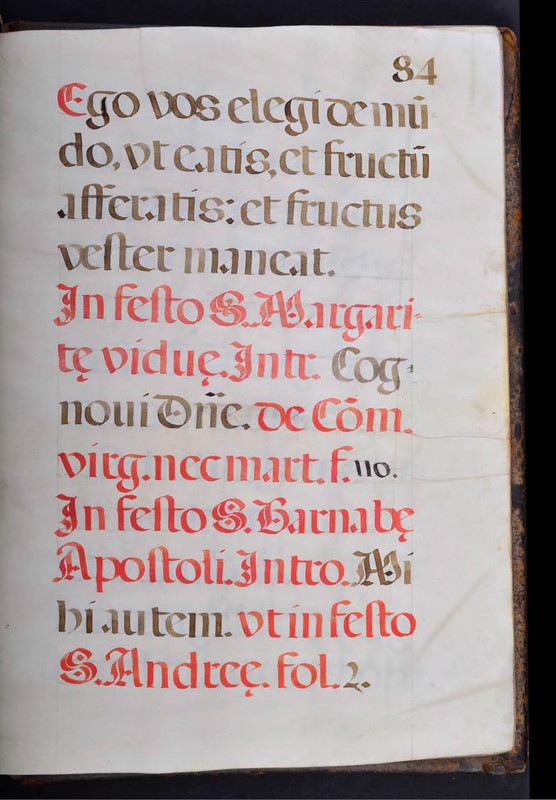 84
Ego vos elegi de mũ-
do, vt eatis, et fructũ
afferatis: et fructus
vester maneat.
In festo S. Margari-
tę viduę. Intr. Cog-
noui Dñe. de Cõm.
virg. nec mart. f. 110.
In festo S. Barnabę
Apostoli. Intro. Mi
hi autem. vt in festo
S. Andreę. fol. 2.